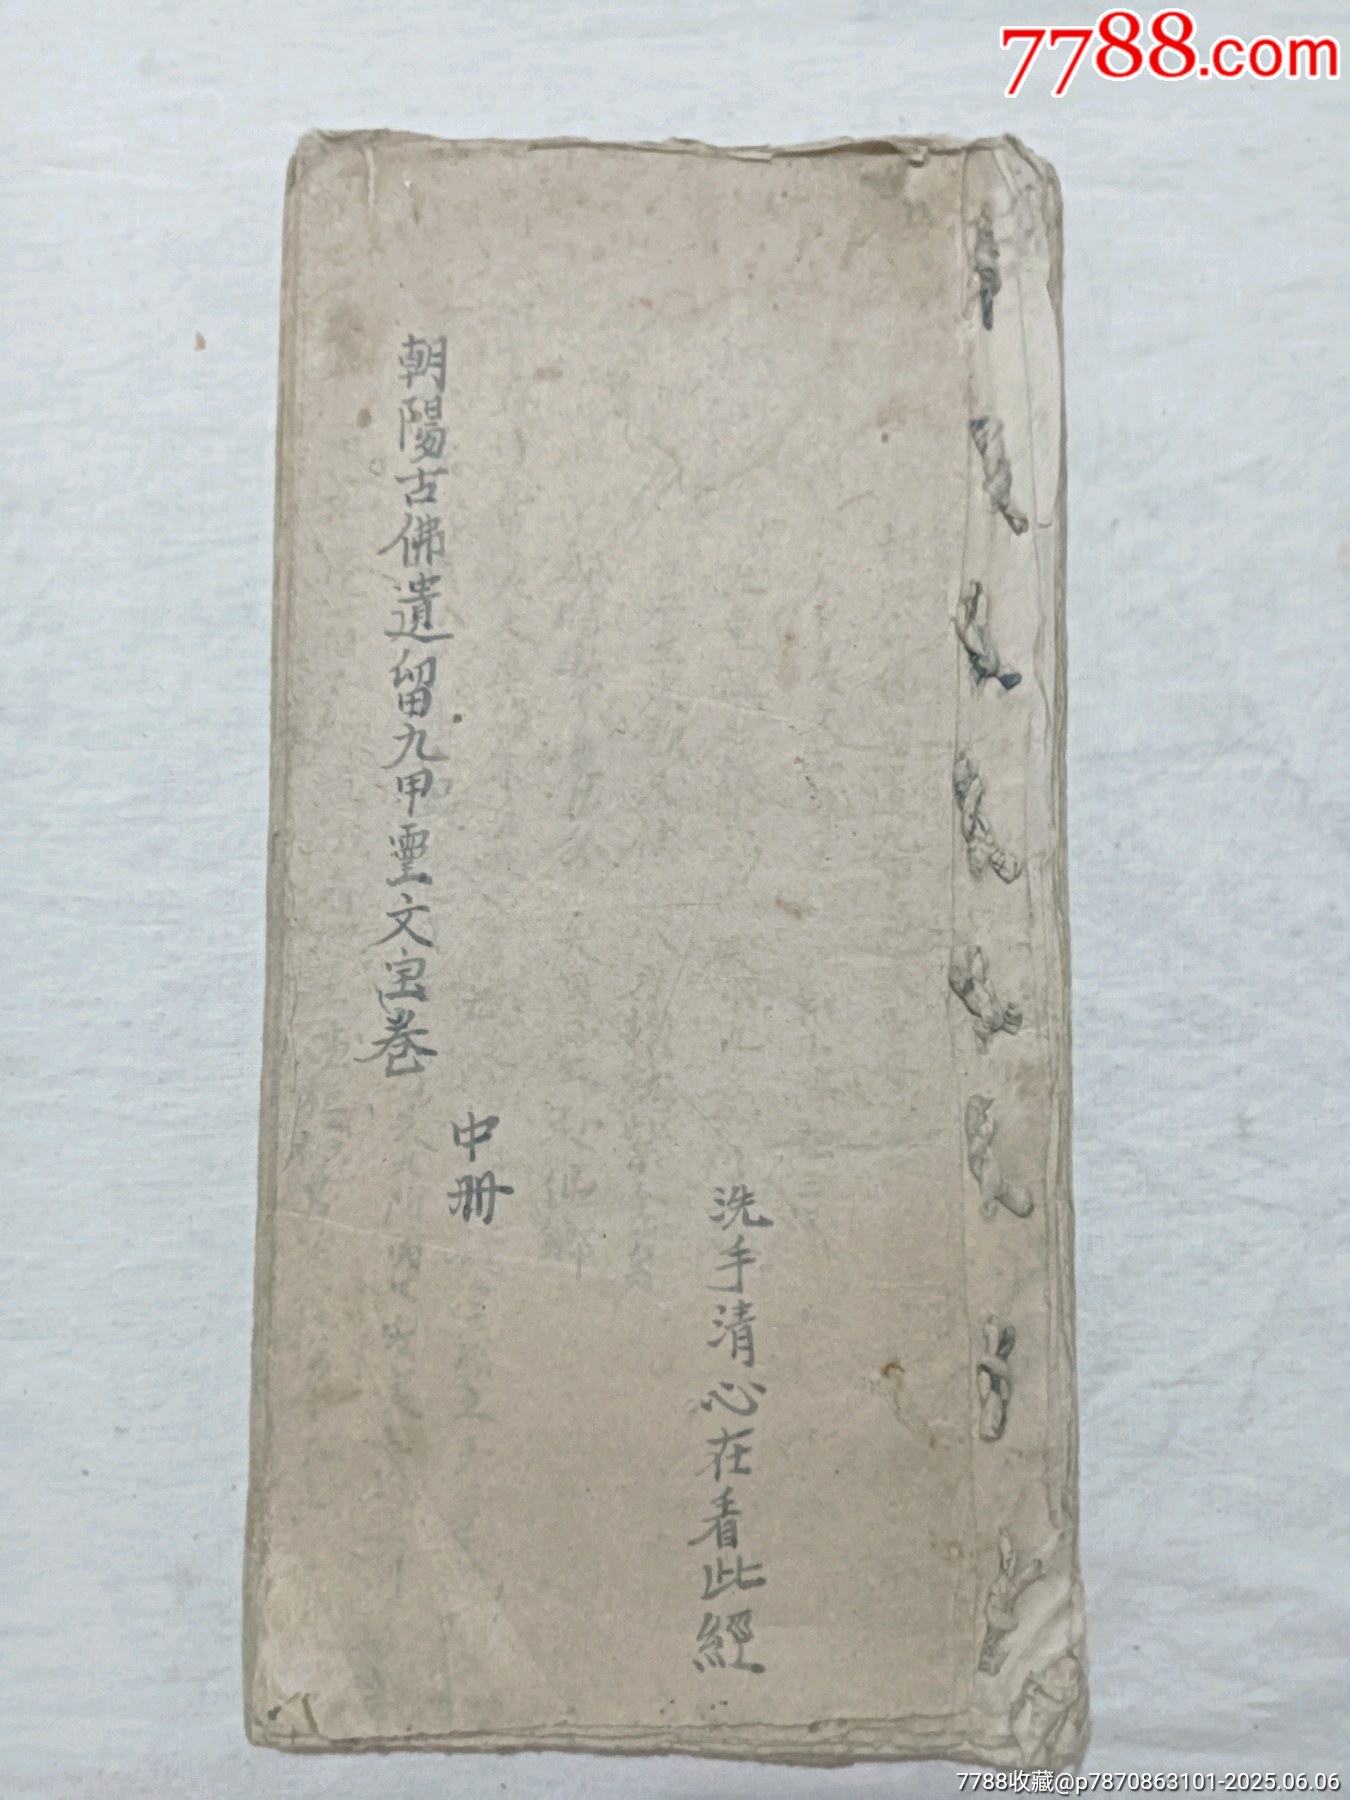 7788.com
洗手清心在看此經
朝陽古佛遺留九甲靈文宝卷
中册
7788收藏@p7870863101-2025.06.06